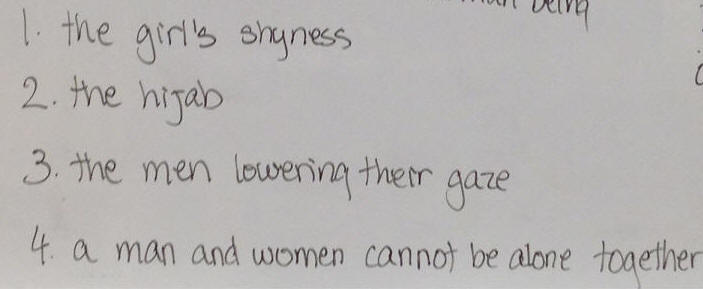 being
1. the girl's shyness
2. the hijab
3. the men lowering their gaze
4. a man and women cannot be alone together